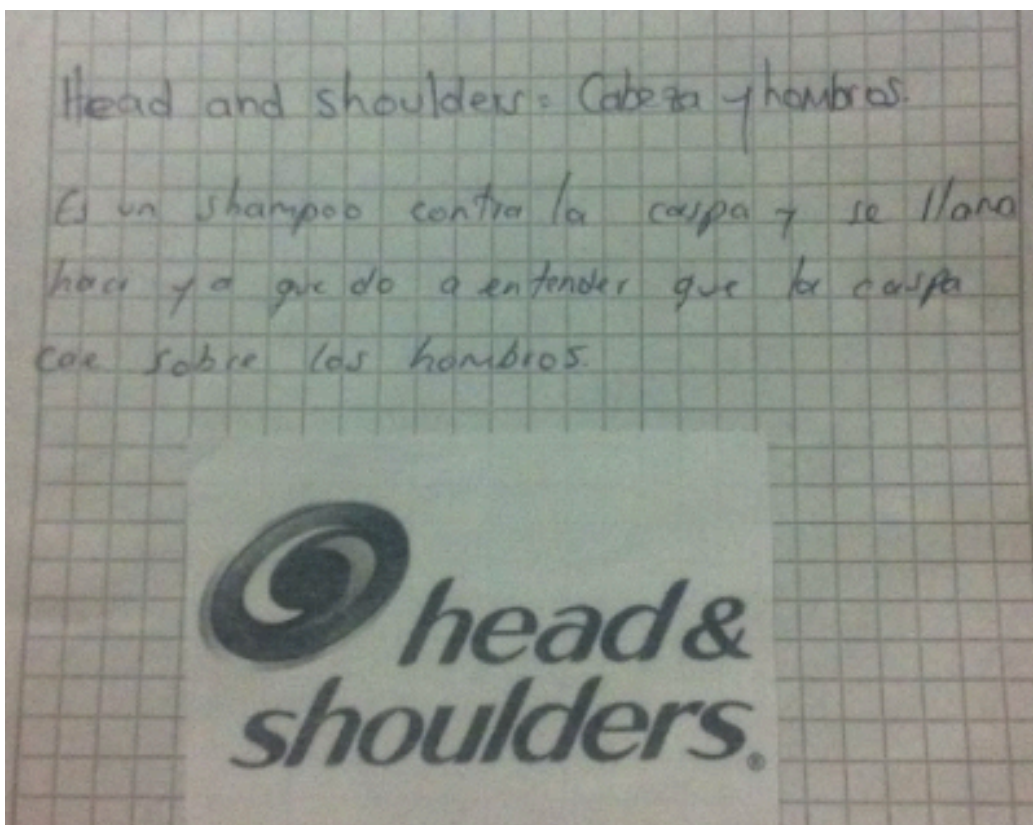 Head and shoulders = Cabeza y hombros.
Es un shampoo contra la caspa y se llama
haci ya que da a entender que la caspa
cae sobre los hombros.
head &
shoulders®